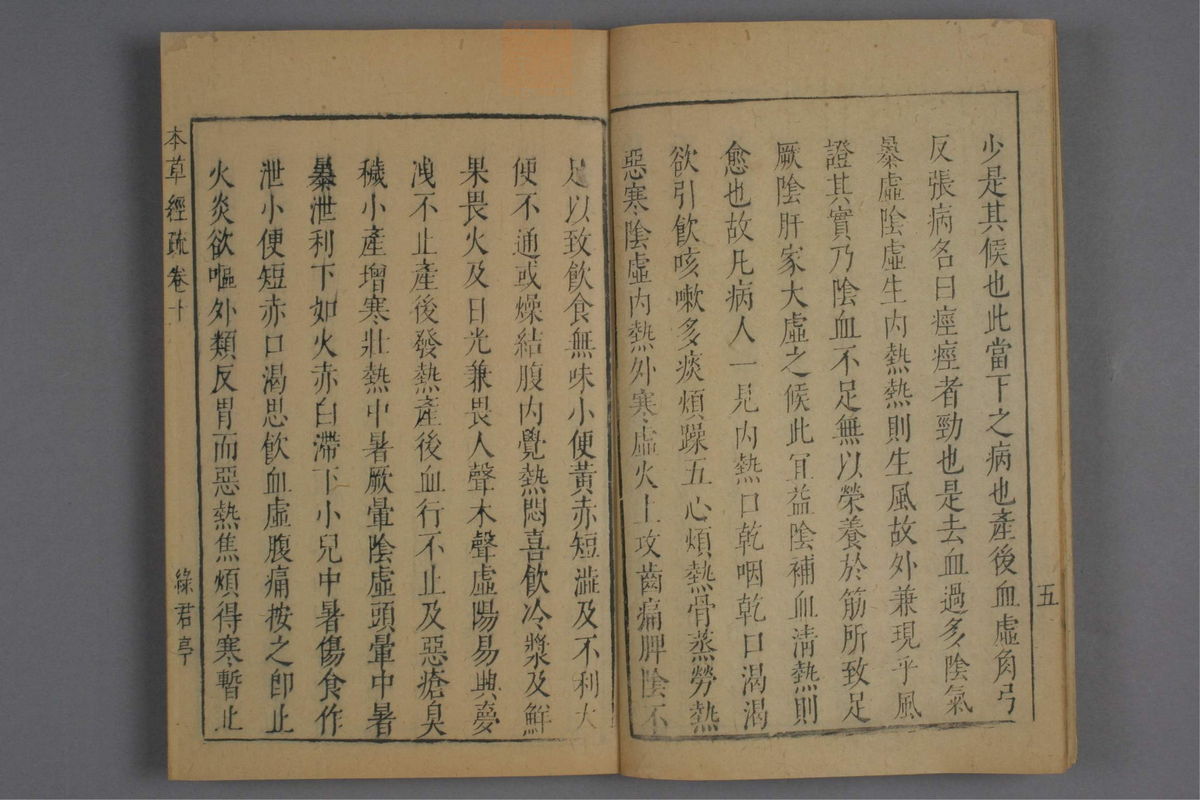 五
少是其候也此當下之病也產後血虛角弓
反張病名曰痙痙者勁也是去血過多陰氣
暴虛陰虛生內熱熱則生風故外兼現乎風
證其實乃陰血不足無以榮養於筋所致足
厥陰肝家大虛之候此冝益陰補血清熱則
愈也故凡病人一見內熱口乾咽乾口渴渴
欲引飲咳嗽多痰煩躁五心煩熱骨蒸勞熱
惡寒陰虛內熱外寒虛火上攻齒痛脾陰不
足以致飲食無味小便黃赤短澁及不利大
便不通或燥結腹內覺熱悶喜飲冷漿及鮮
果畏火及日光兼畏人聲木聲虛陽易興夢
洩不止產後發熱產後血行不止及惡瘡臭
穢小產增寒壯熱中暑厥暈陰虛頭暈中暑
暴泄利下如火赤白滯下小兒中暑傷食作
泄小便短赤口渴思飲血虛腹痛按之卽止
火炎欲嘔外類反胃而惡熱焦煩得寒暫止
本草經疏卷十
綠君亭